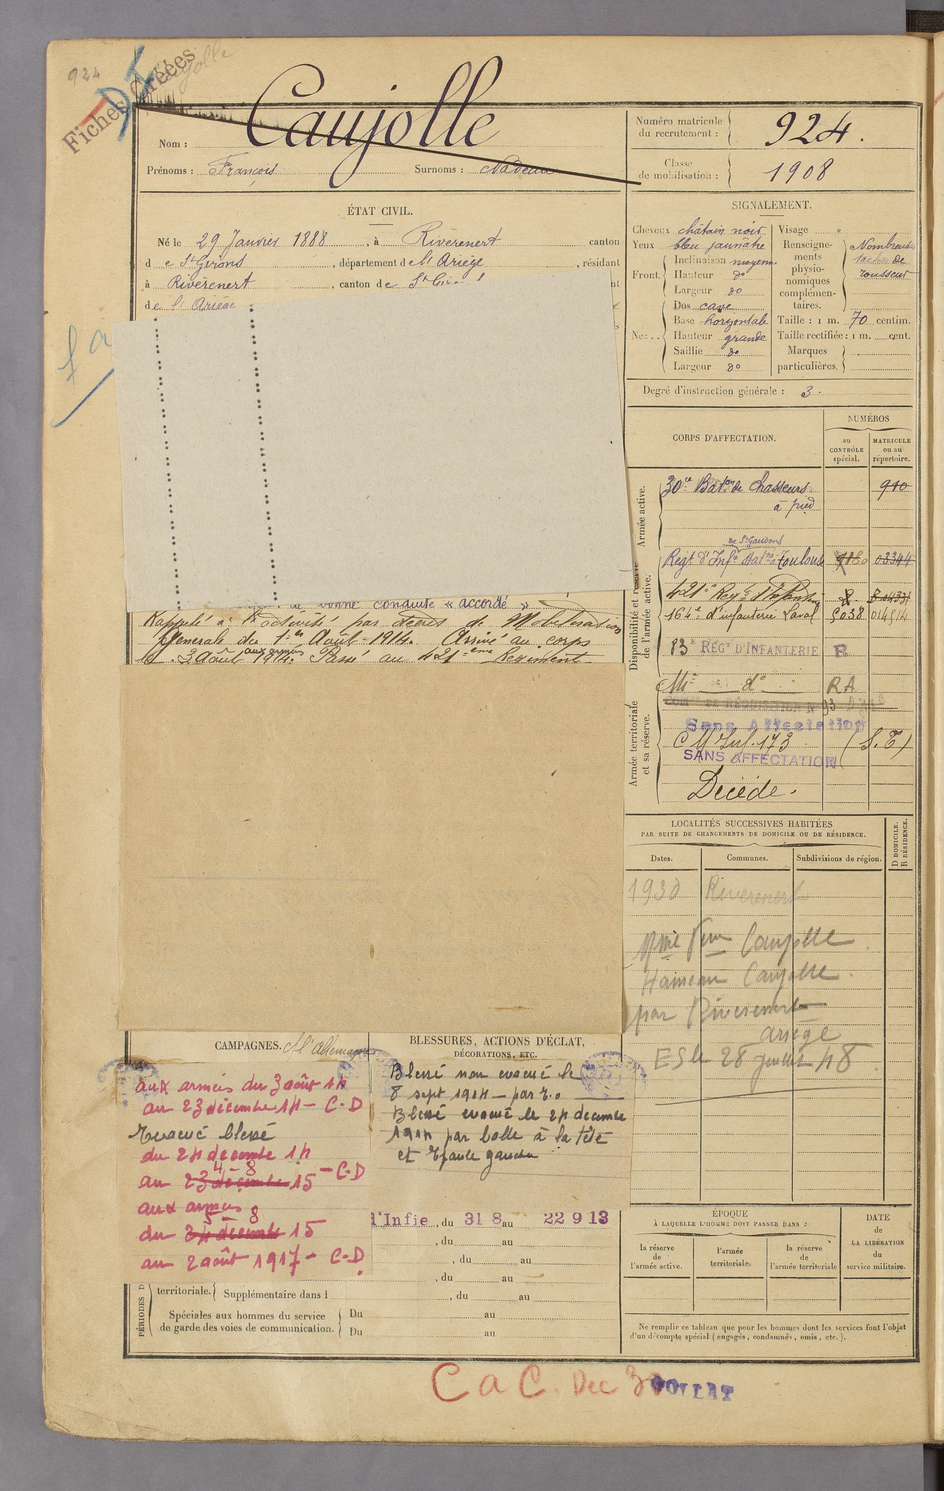 924
Fiches Créées
Caujolle
Nom :
Prénoms : François Surnoms : Nadeau
Numéro matricule
du recrutement :
924.
Classe
de mobilisation :
1908
ÉTAT CIVIL.
Né le 29 Janvier 1888, à Rivèrenert canton
de St Girons, département de l'Ariège, résidant
à Rivèrenert, canton de St Gir
de l'Ariège
SIGNALEMENT.
Cheveux châtain noir
Yeux bleu jaunâtre
Front. Inclinaison moyenne
Hauteur do
Largeur do
Nez Dos cave
Base horizontale
Hauteur grande
Saillie do
Largeur do
Visage
Renseigne-
ments
physio-
nomiques
complémen-
taires.
Nombreuses
taches de
rousseur
Taille : 1 m. 70 centim.
Taille rectifiée : 1 m. cent.
Marques
particulières.
Degré d'instruction générale : 3.
CORPS D'AFFECTATION.
NUMÉROS
au
CONTRÔLE
spécial.
MATRICULE
ou au
répertoire.
Armée active.
30e Baton de Chasseurs
à pied
910
Disponibilité et réserve
de l'armée active.
de St Gaudens
Régt d'Infie Toulouse 03344
421e Régt d'Infanterie
164e d'infanterie Laval 5038
83e RÉGt D'INFANTERIE R
do RA
Armée territoriale
et sa réserve.
Sans Affectation
173 (S.T)
SANS AFFECTATION
Décédé.
de bonne conduite « accordé »
Rappelé à l'activité par décret de Mobilisation
Générale du 1er Août 1914. Arrivé au corps
le 3 août 1914. aux armées Passé au 421ème Régiment
LOCALITÉS SUCCESSIVES HABITÉES
PAR SUITE DE CHANGEMENTS DE DOMICILE OU DE RÉSIDENCE.
Dates. Communes. Subdivisions de région.
D DOMICILE.
R RÉSIDENCE.
1930 Rivèrenert
Mme Vve Caujolle
Hameau Caujolle
par Rivèrenert
ariège
28 juillet 48
CAMPAGNES. Cl'allemagne
aux armées du 3 août 14
au 23 décembre 14 - C.D
Evacué blessé
du 24 décembre 14
4 - 8
au 23 décembre 15 - C.D
aux armées
5 - 8
du 24 décembre 15
au 2 août 1917 - C.D.
BLESSURES, ACTIONS D'ÉCLAT,
DÉCORATIONS, ETC.
Blessé non evacué le
8 sept 1914
Blessé evacué le 24 decembre
1914 par balle à la tête
et Epaule gauche
d'Infie, du 31 8 au 22 9 13
, du au
, du au
, du au
PÉRIODES D
territoriale. Supplémentaire dans l , du au
Spéciales aux hommes du service
de garde des voies de communication.
Du au
Du au
ÉPOQUE
À LAQUELLE L'HOMME DOIT PASSER DANS :
DATE
de
LA LIBÉRATION
du
service militaire.
la réserve
de
l'armée active.
l'armée
territoriale.
la réserve
de
l'armée territoriale
Ne remplir ce tableau que pour les hommes dont les services font l'objet
d'un décompte spécial (engagés, condamnés, omis, etc.).
C a C. Dec